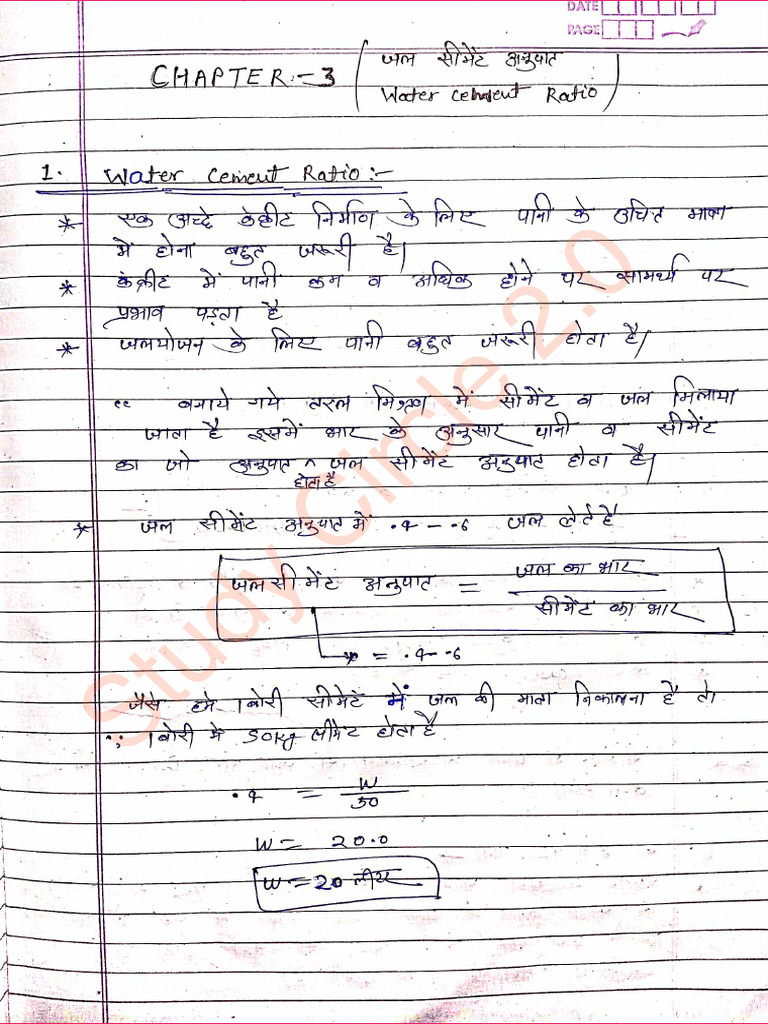 DATE
PAGE
CHAPTER:- 3 ( जल सीमेंट अनुपात
Water Cement Ratio )
1. Water Cement Ratio :-
* एक अच्छे कंक्रीट निर्माण के लिए पानी के उचित मात्रा
में होना बहुत जरूरी है।
* कंक्रीट में पानी कम व अधिक होने पर सामर्थ्य पर
प्रभाव पड़ता है
* जलयोजन के लिए पानी बहुत जरूरी होता है।
“ बनाये गये तरल मिश्रण में सीमेंट व जल मिलाया
जाता है इसमें भार के अनुसार पानी व सीमेंट
का जो अनुपात ^ जल सीमेंट अनुपात होता है।
होता है
* जल सीमेंट अनुपात में .4 - .6 जल लेते है
जल सीमेंट अनुपात = जल का भार
सीमेंट का भार
= .4 - .6
जैसे हमे 1 बोरी सीमेंट में जल की मात्रा निकालना है तो
∵ 1 बोरी में 50kg सीमेंट होता है
.4 = W
50
W = 20.0
W = 20 लीटर
Study Circle 2.0